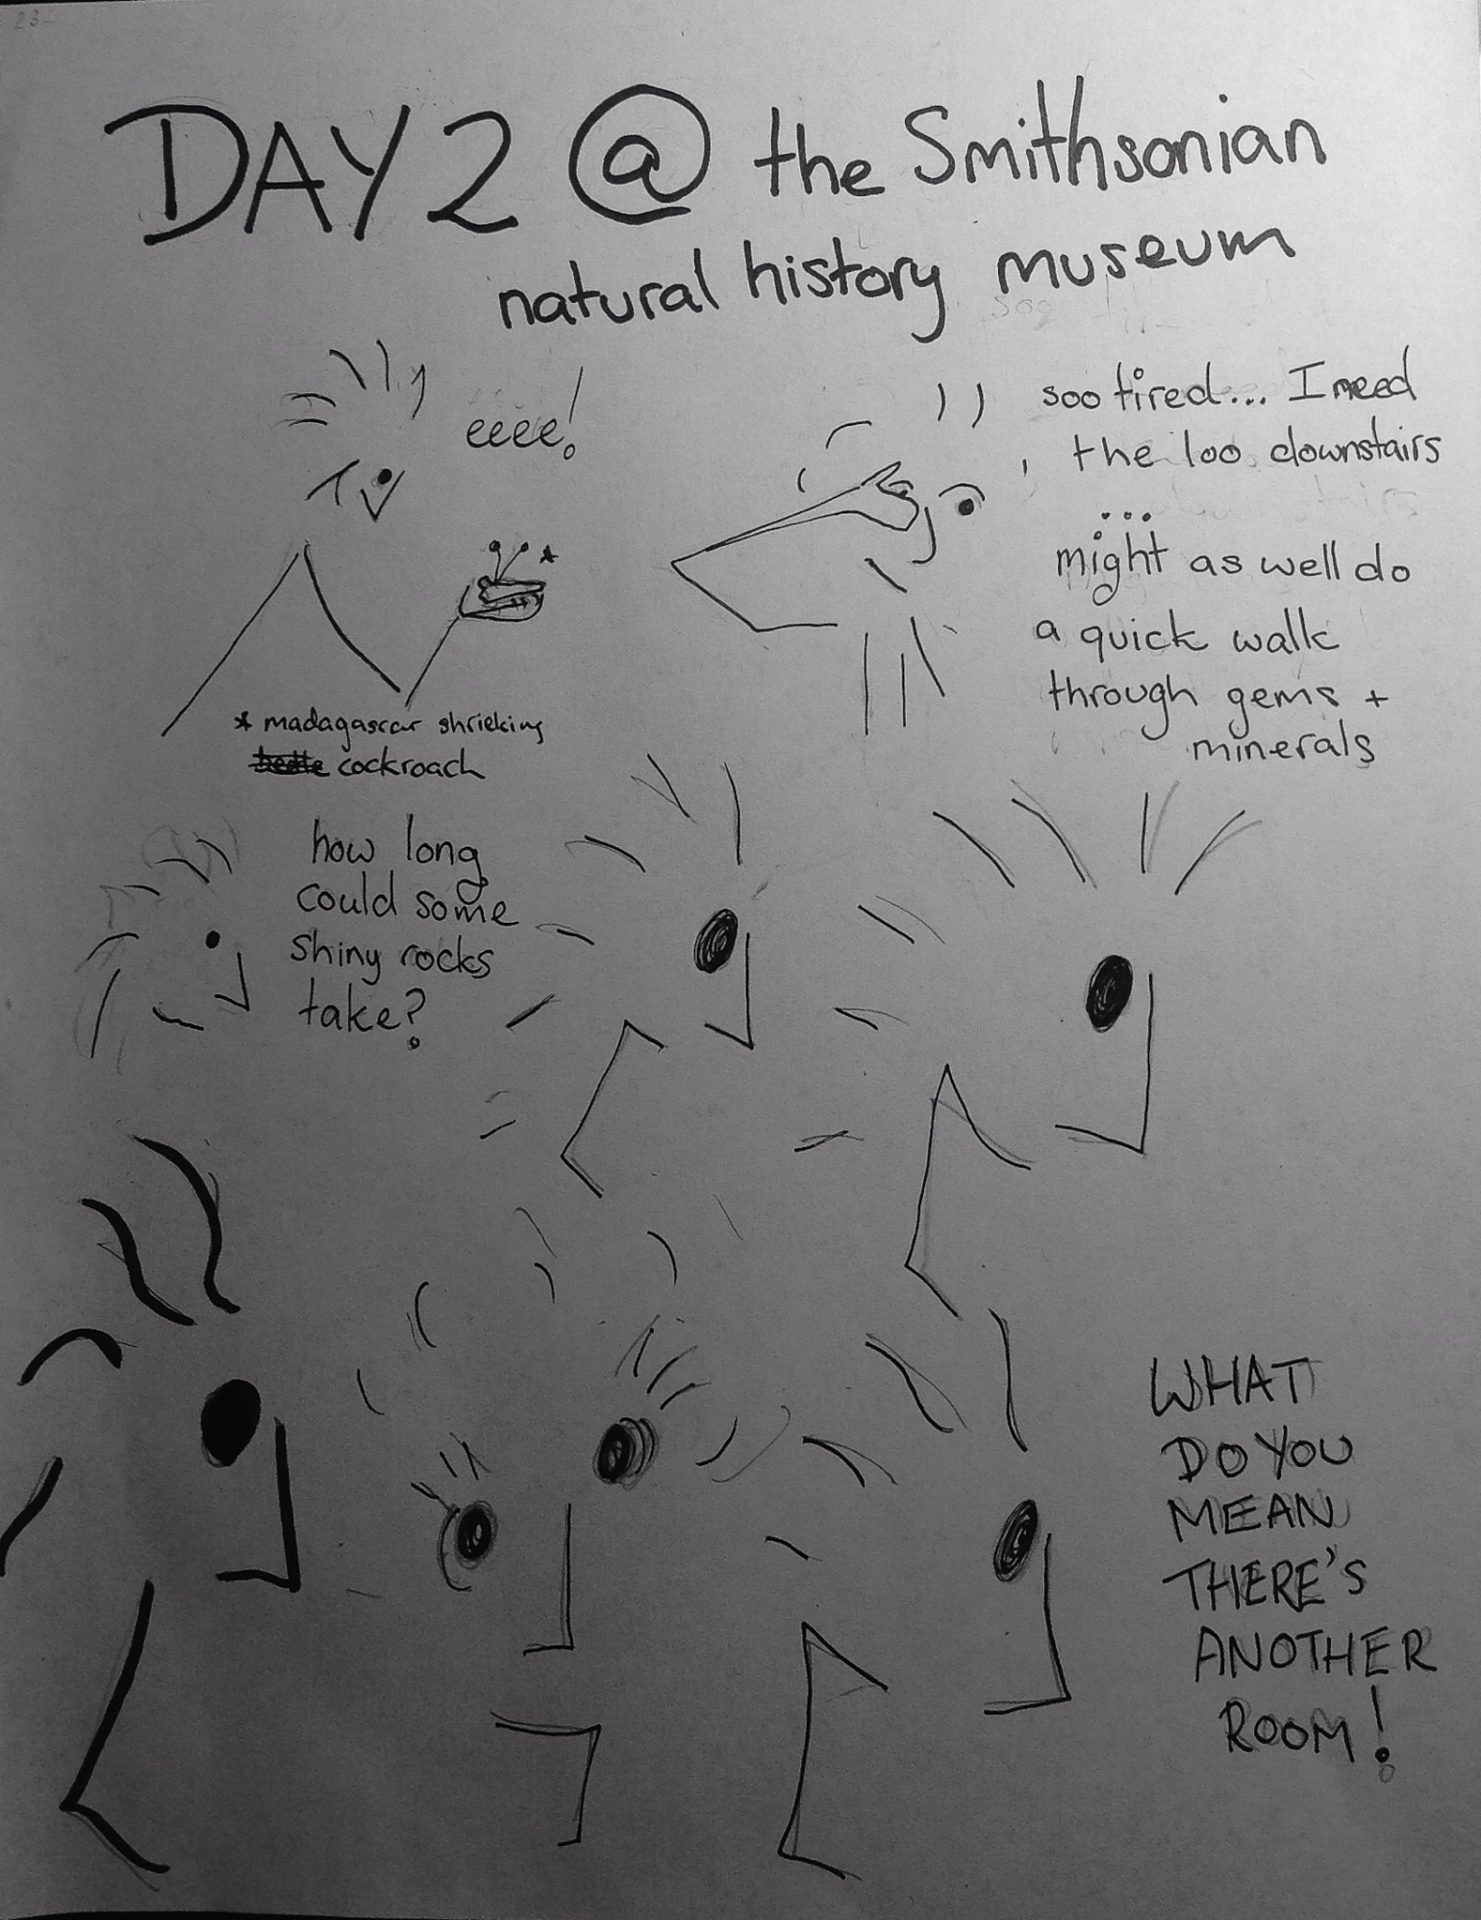 DAY 2 @ the Smithsonian
natural history museum
eeee!
*
* madagascar shrieking
cockroach
soo tired... I need
the loo downstairs
...
might as well do
a quick walk
through gems +
minerals
how long
could some
shiny rocks
take?
WHAT
DO YOU
MEAN
THERE'S
ANOTHER
ROOM!